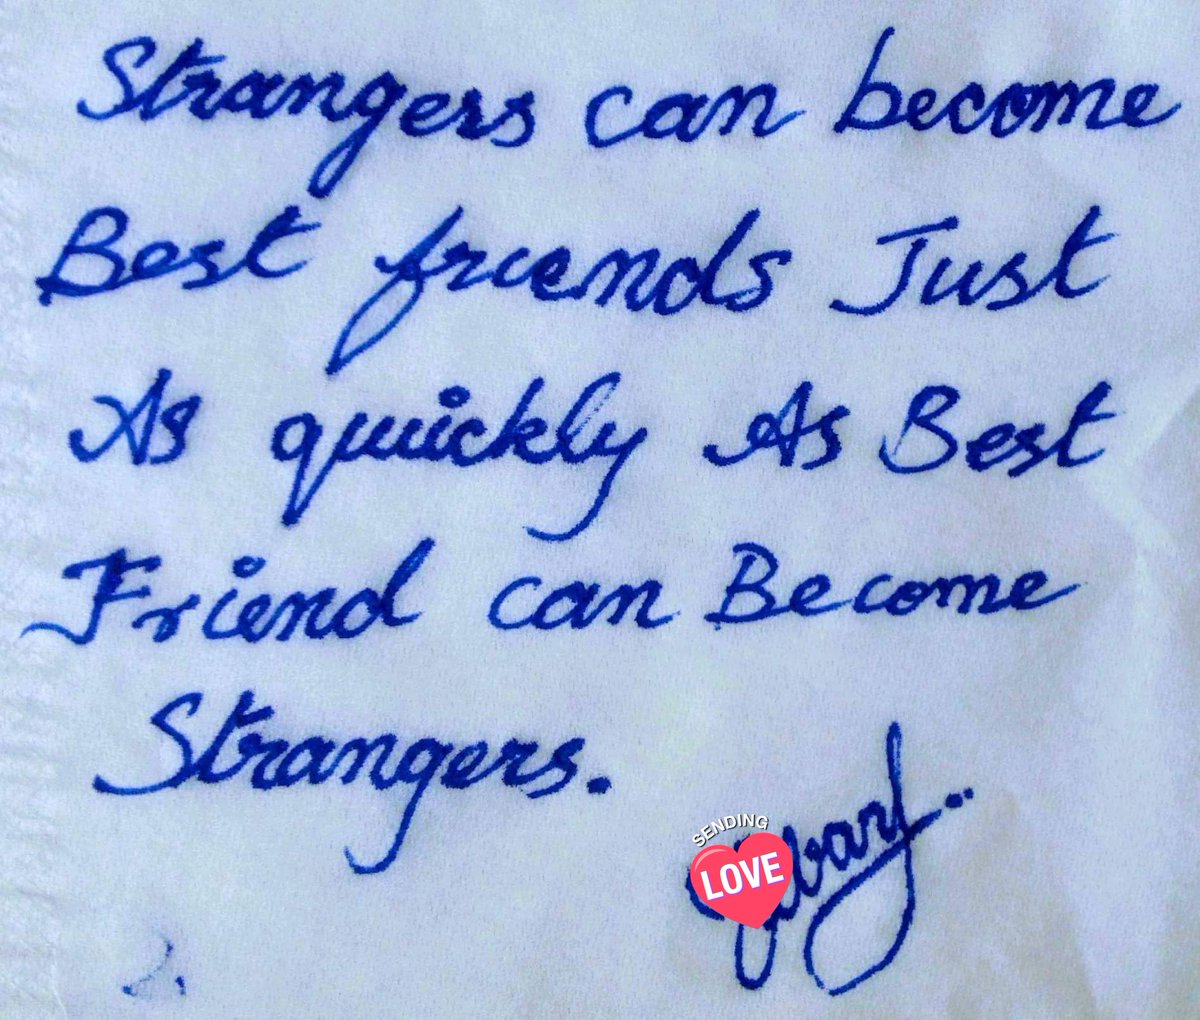 Strangers can become
Best friends Just
As quickly As Best
Friend can Become
Strangers.
SENDING
LOVE